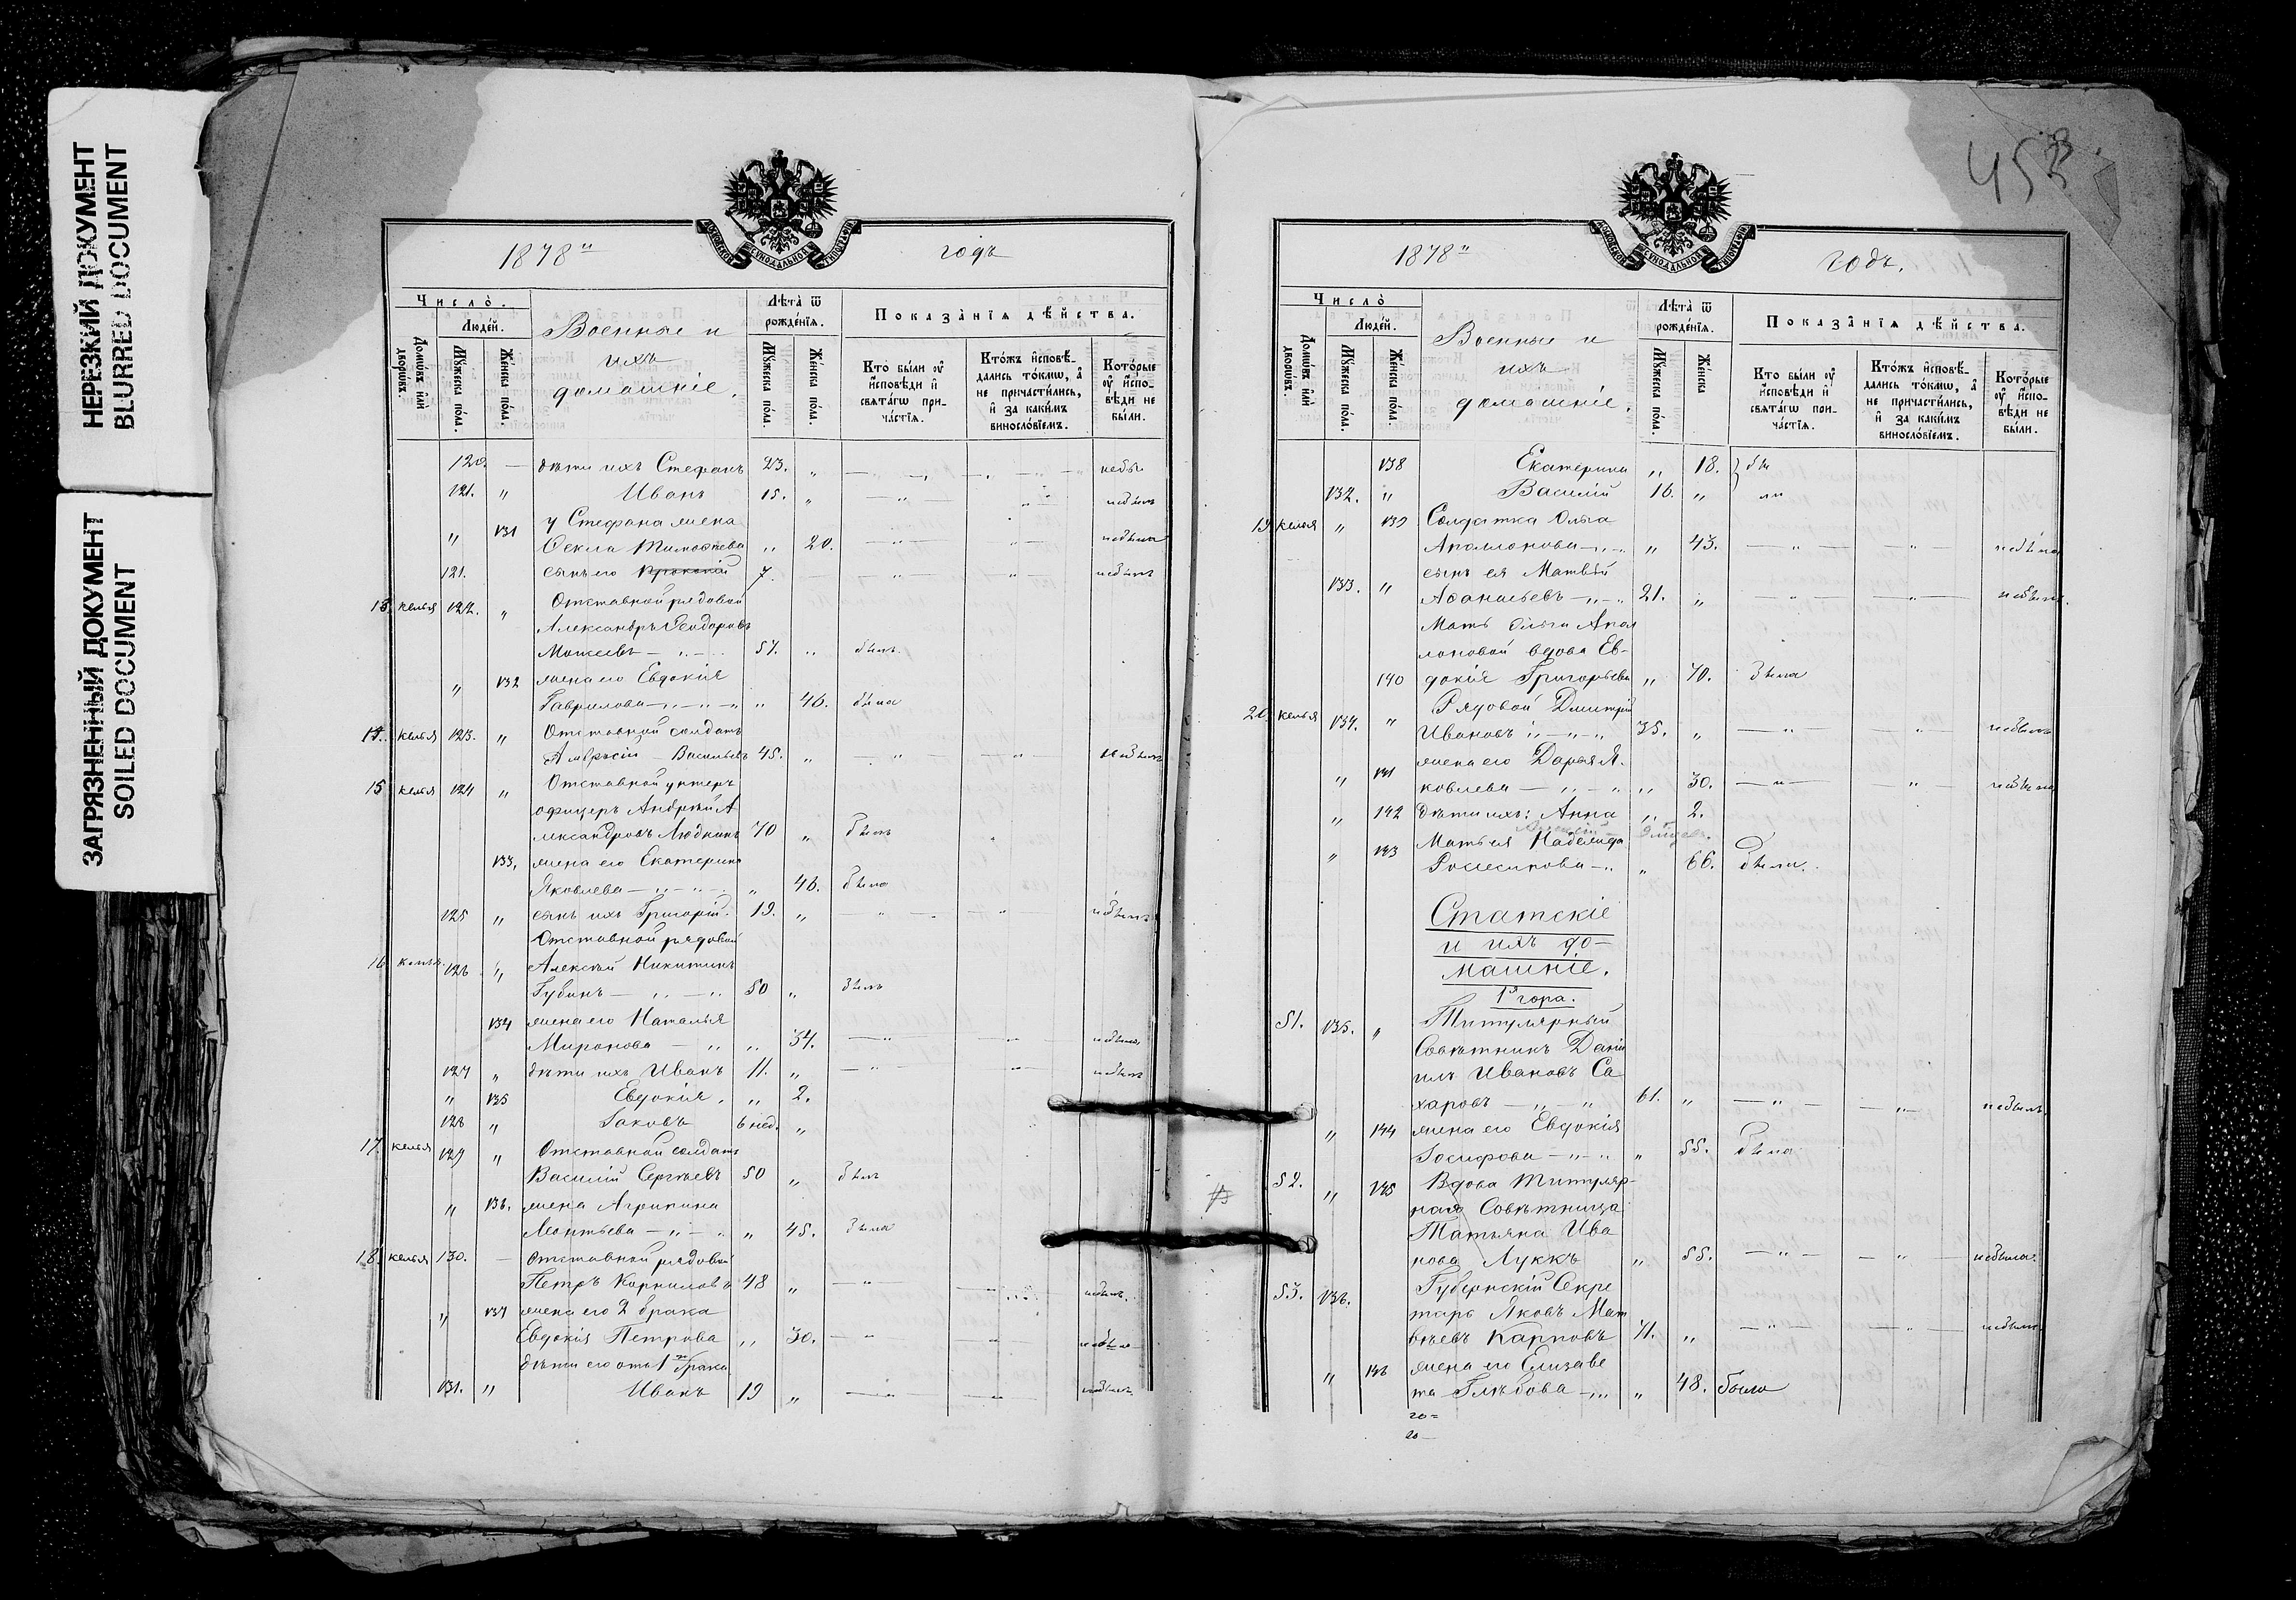 НЕРЕЗКИЙ ДОКУМЕНТ
BLURRED DOCUMENT
ЗАГРЯЗНЕННЫЙ ДОКУМЕНТ
SOILED DOCUMENT
МОСКОВСКОЙ СѴНОДАЛЬНОЙ ТИПОГРАФІИ
1878 годъ
Число̀.
Людей.
Домѡ́въ и҆лѝ дворѡ́въ.
Мꙋ́жеска по́ла.
Же́нска по́ла.
Военные и
ихъ
домашніе.
Лѣта̀ ѿ рожде́нїѧ.
Мꙋ́жеска по́ла.
Же́нска по́ла.
Показа̑нїѧ дѣ́йства.
Кто̀ бы́ли оу҆ и҆сповѣ́ди и҆ свѧта́гѡ при-ча́стїѧ.
Кто́жъ и҆сповѣ́-дались то́кмѡ, а҆ не причасти́лись, и҆ за каки́мъ винослѡ́вїемъ.
Кото́рые оу҆ и҆спо-вѣ́ди не бы́ли.
120 — дѣти ихъ Стефанъ 23. „
121. „ Иванъ 15. „ — „ — небылъ
„ 131 у Стефана жена
Ѳекла Тимоѳеева „ 20. — „ — небыла
121. сынъ его 7. — „ — небылъ
13. келья 122. „ Отставной рядовой
Александръ Ѳеодоровъ
57. „ былъ.
„ 132 жена его Евдокія
Гаврилова „ 46. была
14. келья 123. „ Отставной солдатъ
Амвросій Васильевъ 45. „ — „ — небылъ
15 келья 124 „ Отставной унтеръ
офицеръ Андрей А
лександровъ 70 „ былъ
133. жена его Екатерина
Яковлева — „ 46. была
125 „ сынъ ихъ Григорій. 19. „ — „ — небылъ
Отставной рядовой
16 келья 126 „ Алексѣй Никитинъ
Губинъ — „ — 50 „ былъ
134 жена его Наталья
Миронова — „ „ 34. — „ — небыла
127 „ дѣти ихъ Иванъ 11. „ — „ — небылъ
„ 135 Евдокія. „ 2.
128 „ Іаковъ 6 нед. „
17. келья 129 „ Отставной солдатъ
Василій Сергѣевъ 50 „ былъ
„ 136. жена Агрипина
Леонтьева — „ — „ 45. была
18. келья 130. — Отставной рядовой
Петръ Корниловъ 48 „ — „ — небылъ.
„ 137 жена его 2 брака
Евдокія Петрова „ 30. — „ — небыла
дѣти его отъ 1го брака
131. „ Иванъ 19 „ — „ — небылъ
МОСКОВСКОЙ СѴНОДАЛЬНОЙ ТИПОГРАФІИ
1878 годъ.
Число̀
Людей.
Домѡ́въ и҆лѝ дворѡ́въ.
Мꙋ́жеска по́ла.
Же́нска по́ла.
Военные и
ихъ
домашніе.
Лѣта̀ ѿ рожде́нїѧ.
Мꙋ́жеска по́ла.
Же́нска
Показа̑нїѧ дѣ́йства.
Кто̀ бы́ли оу҆ и҆сповѣ́ди и҆ свѧта́гѡ при-ча́стїѧ.
Кто́жъ и҆сповѣ́-дались то́кмѡ, а҆ не причасти́лись, и҆ за каки́мъ винослѡ́вїемъ.
Кото́рые оу҆ и҆спо-вѣ́ди не бы́ли.
138 Екатерина „ 18. } бы
132. „ Василій 16. „ ли
19 келья „ 139 Солдатка Ольга
Аполлонова — „ 43. — „ — небыла
133. „ сынъ ея Матвѣй
Аѳанасьевъ — „ 21. „ — „ — небылъ.
Мать Ольги Апол
лоновой вдова Ев-
140 докія Григорьева „ 70. была
20. келья 134. „ Рядовой Дмитрій
Ивановъ „ — „ 35. „ — „ — небылъ
„ 141 жена его Дарья Я.
ковлева — „ — „ 30. — „ — небыла
„ 142 дѣти ихъ: Анна „ 2.
„ 143 Мать ея Надежда
„ 66. была.
Статскіе
и ихъ до-
машніе.
1я гора.
51. 135. „ Титулярный
Совѣтникъ Даніи
илъ Ивановъ Са
харовъ — „ — 61. „ — „ — небылъ.
„ 144 жена его Евдокія
Іосифова — „ — „ 55. была
52. „ 145 Вдова Титуляр-
ная Совѣтница
Татьяна Ива
нова Луккъ „ 55. — „ — небыла.
53. 136. Губернскій Секре
тарь Яковъ Мат
вѣевъ Карповъ 71. „ — „ — небылъ
„ 146 жена его Елизаве
та Глѣбова — „ „ 48. была
20 =
20 —